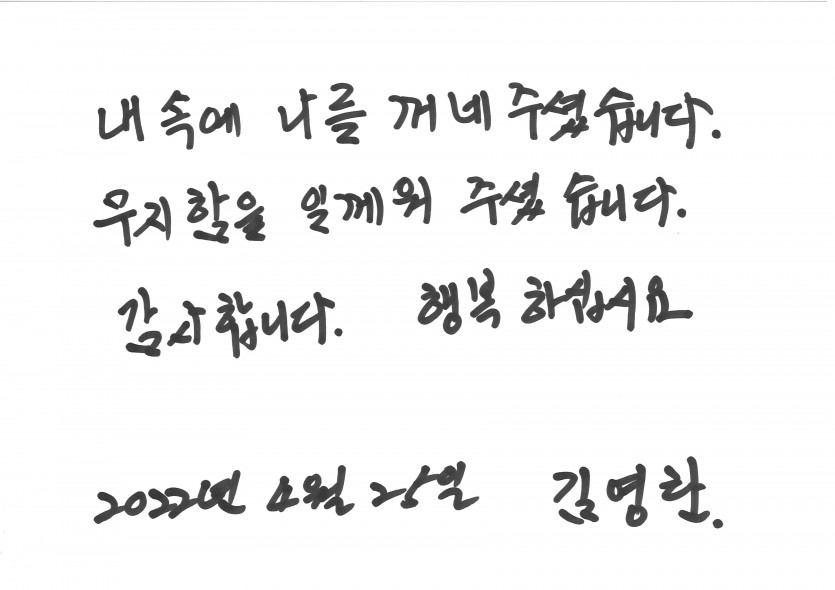 내 속에 나를 꺼네 주셨습니다.
무지함을 일께워 주셨습니다.
감사합니다. 행복하십시요
2022년 4월 25일 김영환.